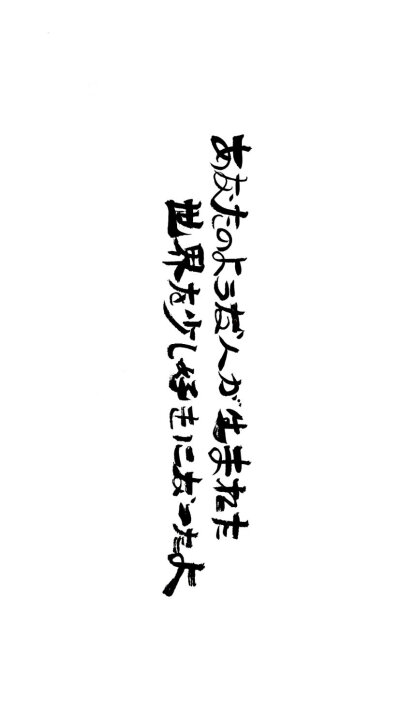 あなたのような人が生まれた
世界を少し好きになったよ